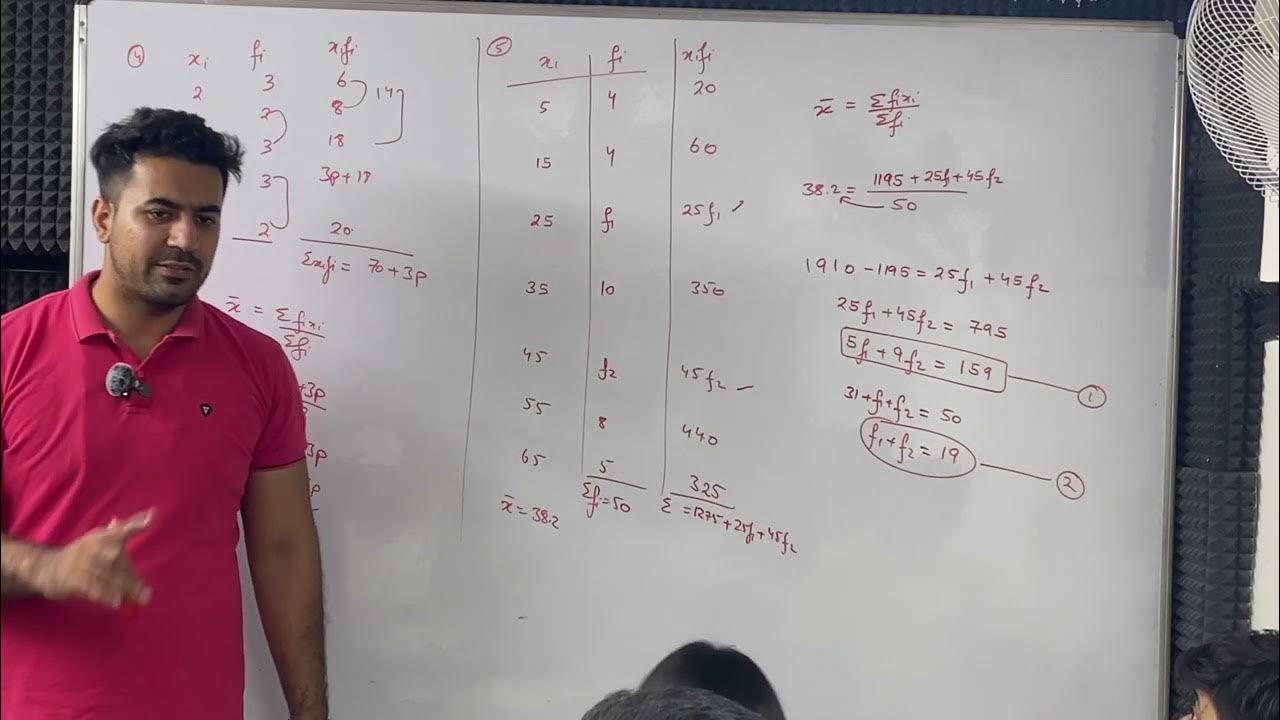 ④ xᵢ fᵢ xᵢfᵢ
2 3 6
2 8 14
3 18
3 3p+18
2 20
Σxᵢfᵢ = 70+3p
x̄ = Σfᵢxᵢ / Σfᵢ
+3p
3p
⑤ xᵢ fᵢ xᵢfᵢ
5 4 20
15 4 60
25 f₁ 25f₁
35 10 350
45 f₂ 45f₂
55 8 440
65 5 325
x̄ = 38.2 Σfᵢ=50 Σ =1275+25f₁+45f₂
x̄ = Σfᵢxᵢ / Σfᵢ
38.2 = 1195 + 25f₁ + 45f₂ / 50
1910 - 1195 = 25f₁ + 45f₂
25f₁ + 45f₂ = 795
5f₁ + 9f₂ = 159 ①
31+f₁+f₂ = 50
f₁+f₂ = 19 ②